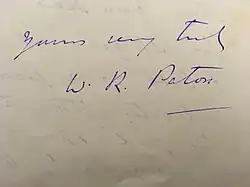 Yours very truly
W. R. Paton